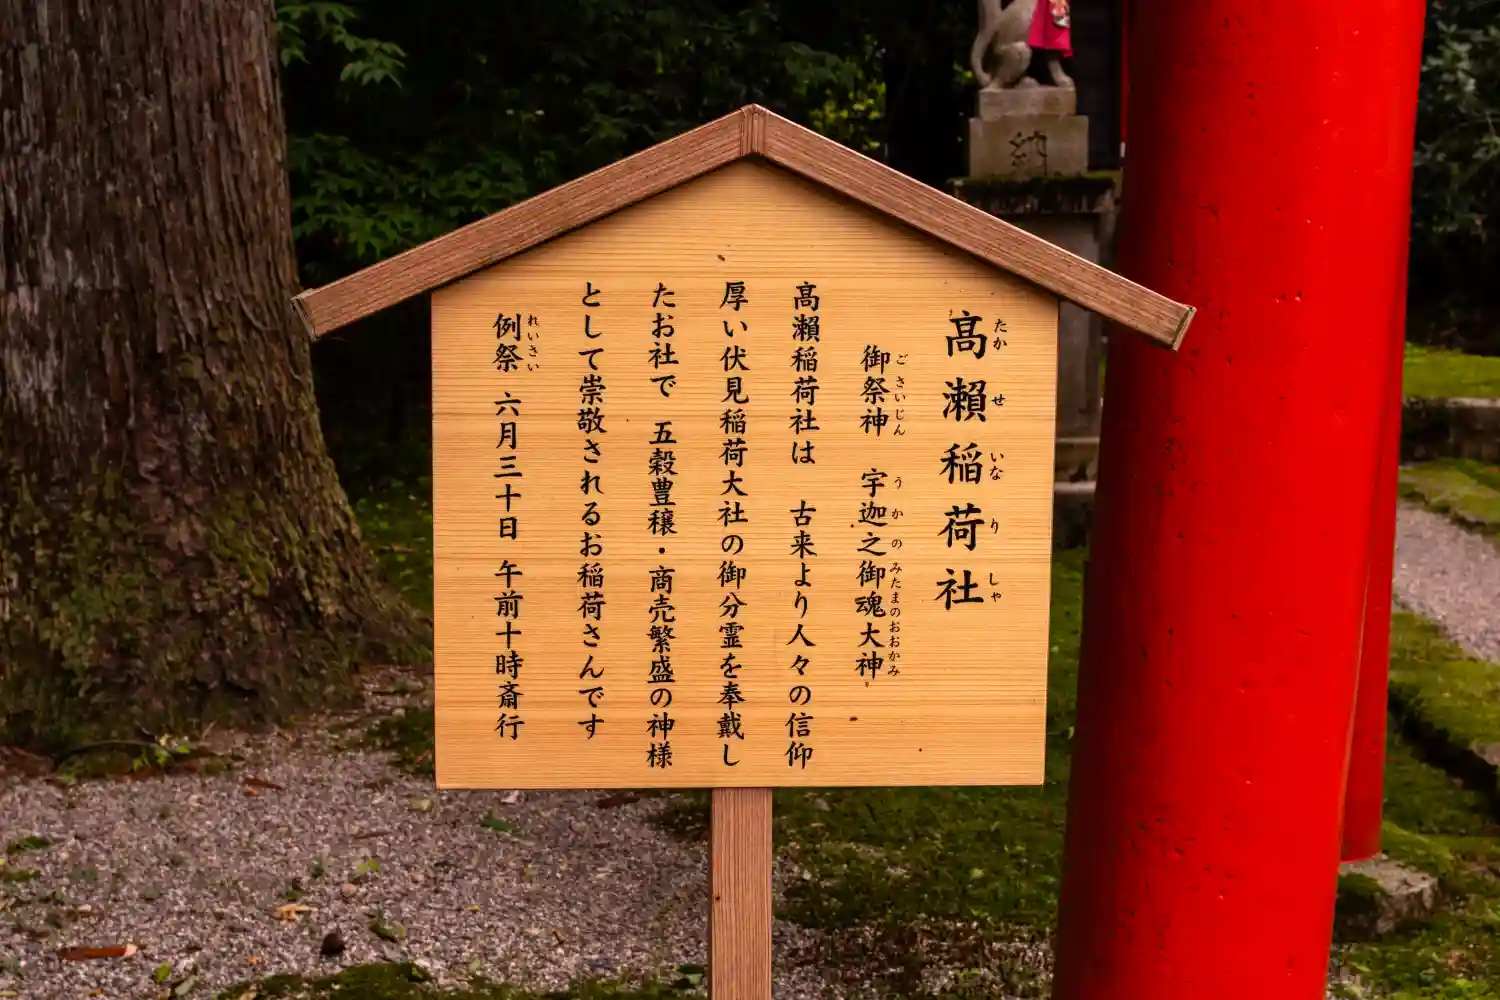 髙瀨稲荷社
たかせいなりしゃ
御祭神　宇迦之御魂大神
ごさいじん　うかのみたまのおおかみ
髙瀨稲荷社は　古来より人々の信仰
厚い伏見稲荷大社の御分霊を奉戴し
たお社で　五穀豊穣・商売繁盛の神様
として崇敬されるお稲荷さんです
例祭　六月三十日　午前十時斎行
れいさい
納